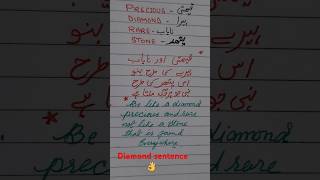 PRECIOUS - قیمتی
DIAMOND - ہیرا
RARE - نایاب
STONE - پتھر
قیمتی اور نایاب
ہیرے کی طرح بنو
اس پتھر کی طرح
نہیں جو ہر جگہ ملتا ہے
Be like a diamond
precious and rare
not like a stone
that is found
Everywhere
Diamond sentence